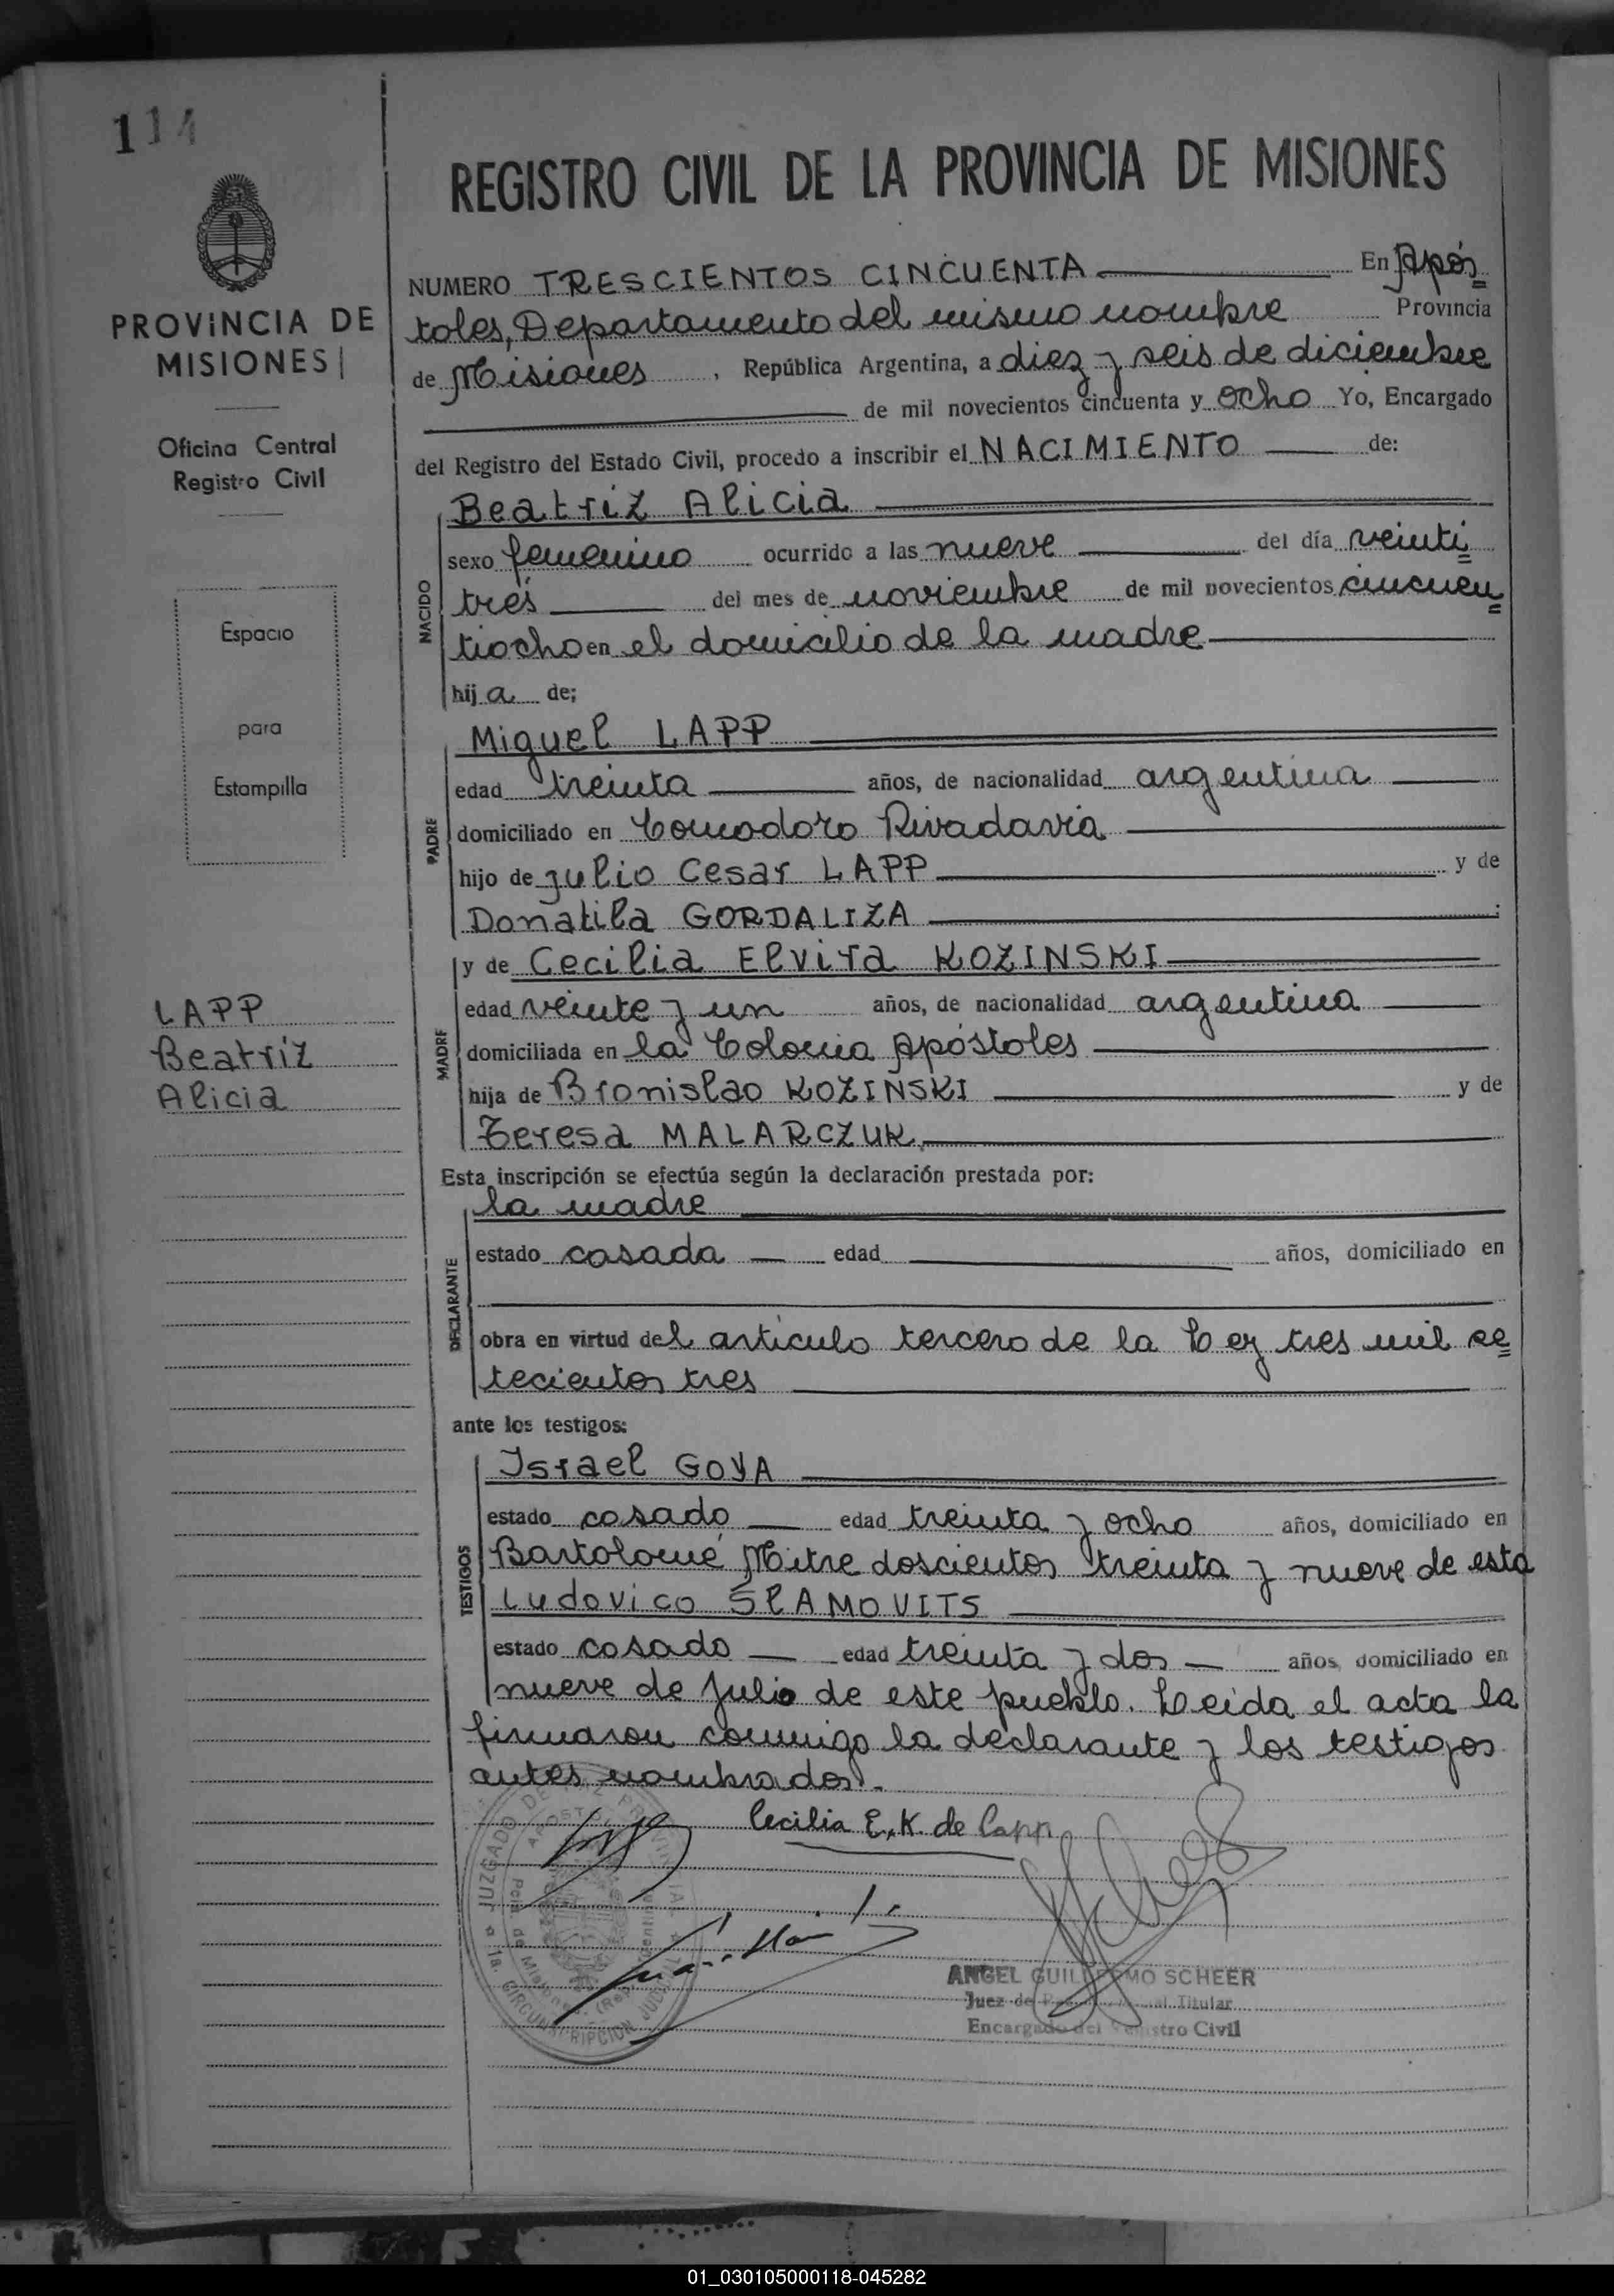 114
REGISTRO CIVIL DE LA PROVINCIA DE MISIONES
PROVINCIA DE
MISIONES
Oficina Central
Registro Civil
Espacio
para
Estampilla
LAPP
Beatriz
Alicia
NUMERO TRESCIENTOS CINCUENTA En Após
toles, Departamento del mismo nombre Provincia
de Misiones, República Argentina, a diez y seis de diciembre
de mil novecientos cincuenta y ocho Yo, Encargado
del Registro del Estado Civil, procedo a inscribir el NACIMIENTO de:
NACIDO
Beatriz Alicia
sexo femenino ocurrido a las nueve del día veinti
trés del mes de noviembre de mil novecientos cincuen
tiocho en el domicilio de la madre
hija de;
PADRE
Miguel LAPP
edad treinta años, de nacionalidad argentina
domiciliado en Comodoro Rivadavia
hijo de Julio Cesar LAPP y de
Donatila GORDALIZA
MADRE
y de Cecilia Elvira KOZINSKI
edad veinte y un años, de nacionalidad argentina
domiciliada en la Colonia Apóstoles
hija de Bronislao KOZINSKI y de
Teresa MALARCZUK
Esta inscripción se efectúa según la declaración prestada por:
DECLARANTE
la madre
estado casada edad años, domiciliado en
obra en virtud del artículo tercero de la Ley tres mil se
tecientos tres
ante los testigos:
TESTIGOS
Israel GOYA
estado casado edad treinta y ocho años, domiciliado en
Bartolomé Mitre doscientos treinta y nueve de esta
Ludovico SLAMOVITS
estado casado edad treinta y dos años, domiciliado en
nueve de Julio de este pueblo. Leída el acta la
firmaron conmigo la declarante y los testigos
antes nombrados.
Cecilia E. K. de Lapp
JUZGADO DE
1a. CIRCUNSCRIPCION
ANGEL GUILLERMO SCHEER
Juez de Titular
Encargado del Registro Civil
01_030105000118-045282